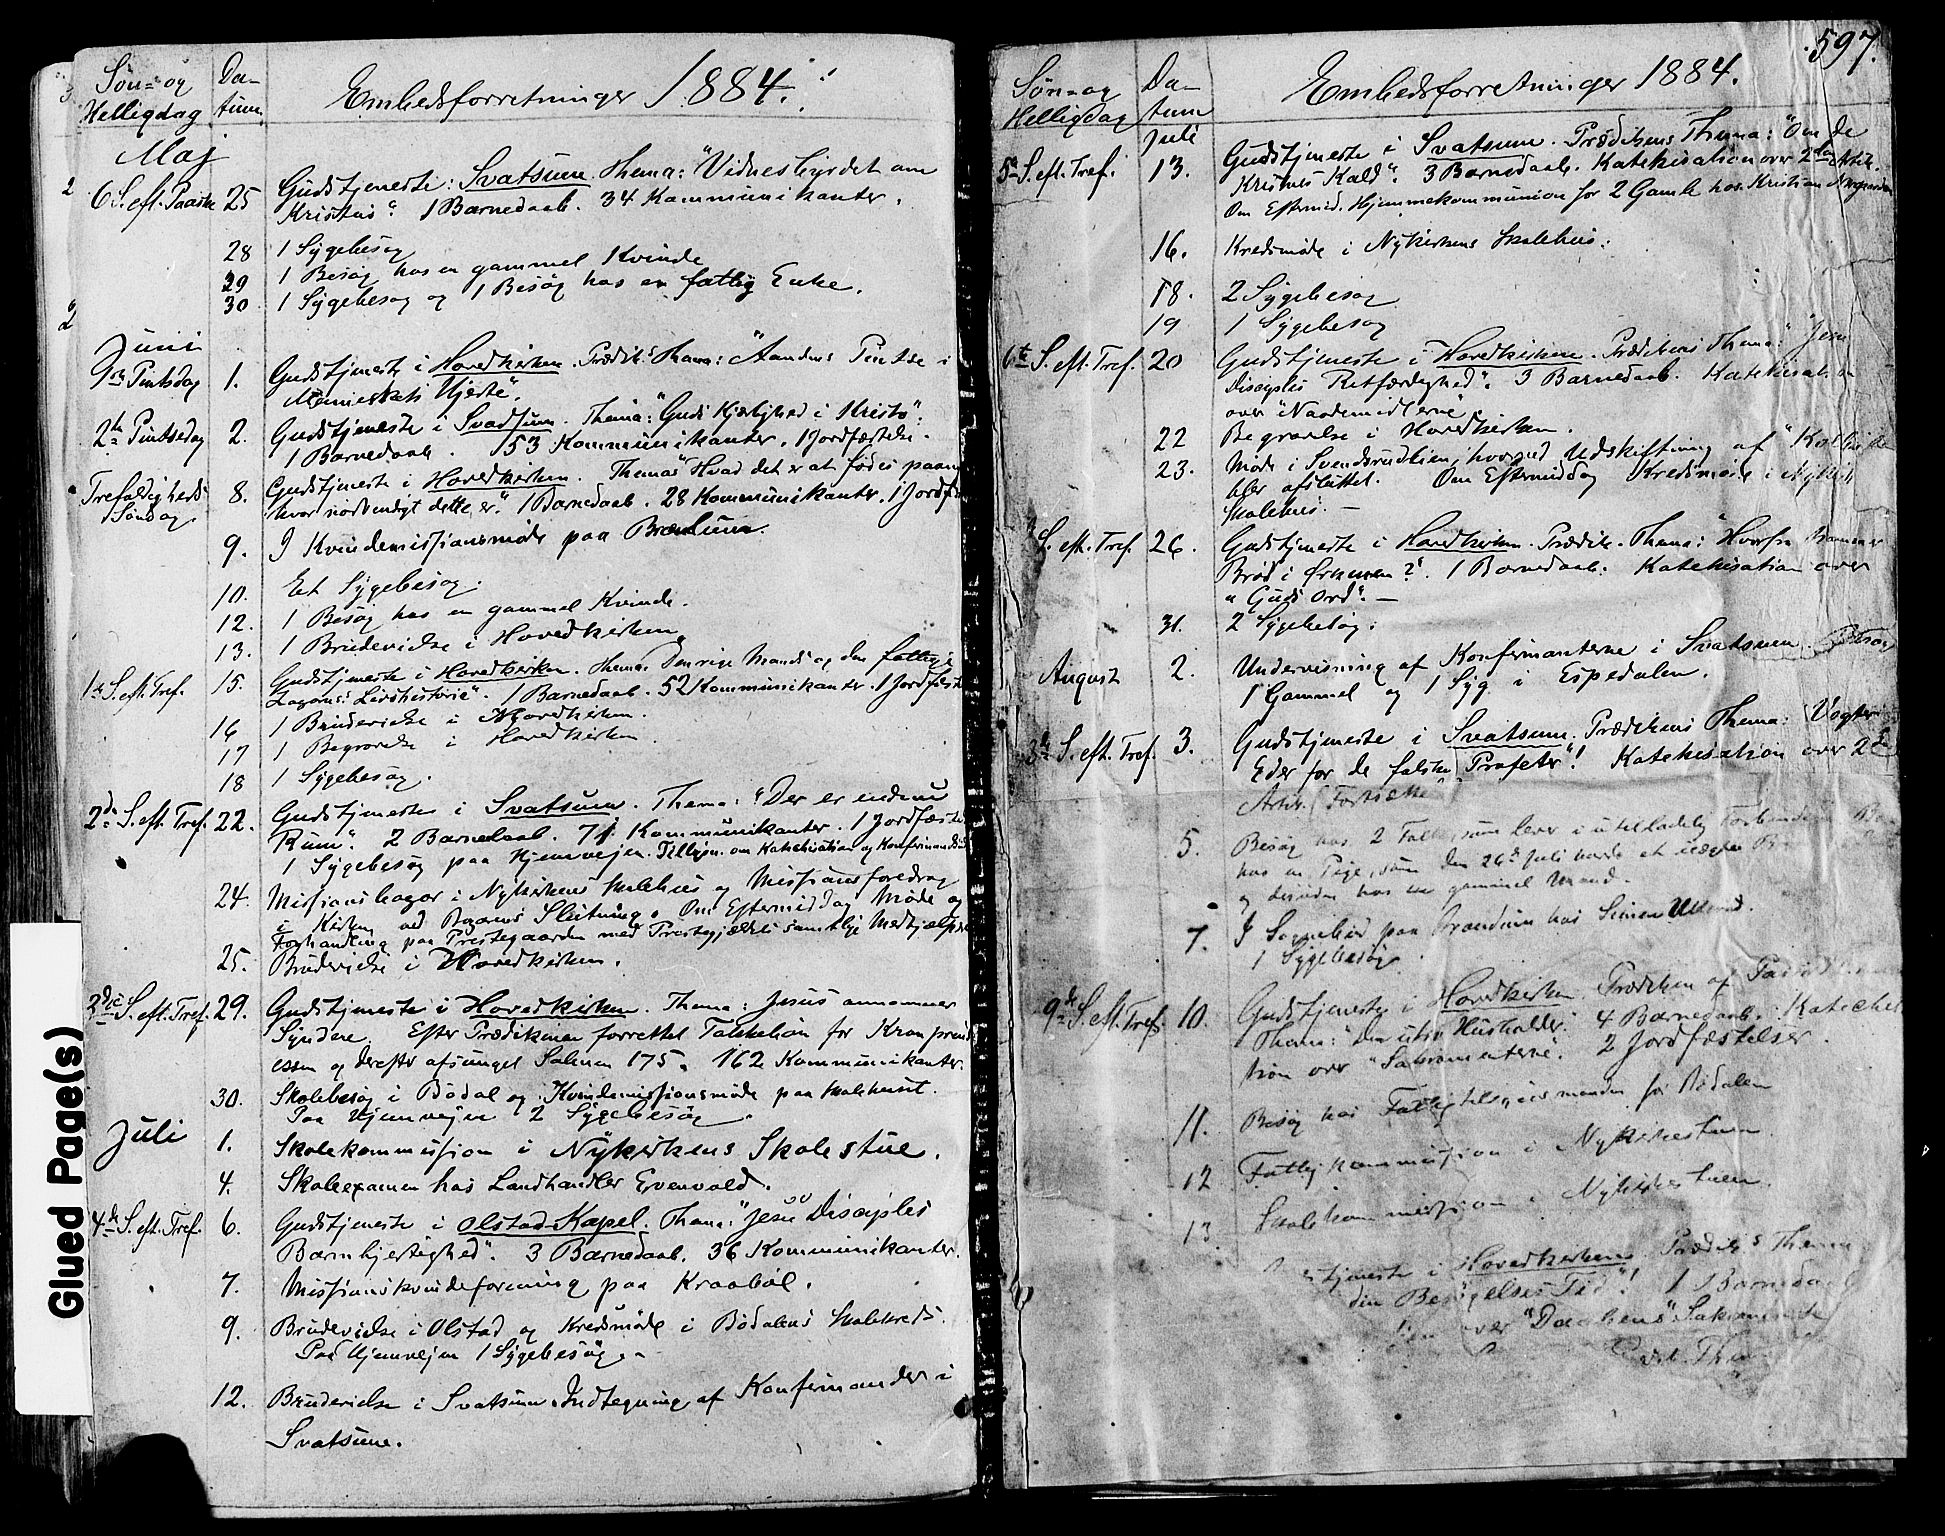 Søn- og Da-
Helligdag tum. Embedsforretninger 1884.
Maj
6 S. eft. Paaske 25 Gudstjeneste: Svatsum. Thema: "Vidnesbyrdet om
Kristus". 1 Barnedaab. 34 Kommunikanter.
28 1 Sygebesøg
29 1 Besøg hos en gammel Kvinde
30 1 Sygebesøg og 1 Besøg hos en fattig Enke.
Juni
1ste Pintsdag 1. Gudstjeneste i Hovedkirken. Prædik.s Thema: "Aandens Pintse i
Menneskets Hjerte".
2den Pintsedag 2. Gudstjeneste i Svadsum. Thema: "Guds Kjærlighed i Kristo".
1 Barnedaab. 153 Kommunikanter. 1 Jordfæstelse.
Trefoldigheds 8. Gudstjeneste i Hovedkirken. Thema: "Hvad det er at fødes paany
Søndag hvor nødvendigt dette er". 1 Barnedaab. 28 Kommunikanter. 1 Jordf
9. I Kvindemissionsmøde paa
10. Et Sygebesøg.
12. 1 Besøg hos en gammel Kvinde.
13. 1 Brudevielse i Hovedkirken.
1ste S. eft. Tref. 15. Gudstjeneste i Hovedkirken. Thema: Den rige Mands og den fattige
Lazarus: Livshistorie". 1 Barnedaab. 52 Kommunikanter. 1 Jordfæst
16 1 Brudevielse i Hovedkirken.
17 1 Begravelse i Hovedkirken.
18 1 Sygebesøg.
2den S. eft. Tref. 22. Gudstjeneste i Svatsum. Thema: "Der er endnu
Rum". 2 Barnedaab. 71 Kommunikanter. 1 Jordfæste
1 Sygebesøg paa Hjemvejen. Tillysn. om Katekisation og Konfirmands
24. Missionsbazar i Nykirkens Skolehus og Missionsforedrag
i Kirken ved Dagens Slutning. Om Eftermiddag Møde og
Forhandling paa Prestegaarden med Prestegjældets samtlige Medhjælpere
25. Brudevielse i Hovedkirken.
3die S. eft. Tref. 29. Gudstjeneste i Hovedkirken. Thema: Jesus annammer
Syndere. Efter Prædikenen forrettet Takkebøn for Kronprinds
essen og derefter afsunget Salmen 175. 162 Kommunikanter.
30. Skolebesøg i Bødal og Kvindemissionsmøde paa Skolehuset.
Paa Hjemvejen 2 Sygebesøg.
Juli 1. Skolekommission i Nykirkens Skolestue.
4. Skoleexamen hos Landhandler Evenvold.
4de S. eft. Tref. 6. Gudstjeneste i Olstad Kapel. Thema: "Jesu Disciples
Barmhjertighed". 3 Barnedaab. 36 Kommunikanter.
7. Missionskvindeforening paa Kraabøl.
9. Brudevielse i Olstad og Kredsmøde i Bødalens Skolekreds.
Paa Hjemvejen 1 Sygebesøg.
12. Brudevielse i Svatsum. Indtegning af Konfirmander i
Svatsum.
597.
Søn- og Da-
Helligdag tum Embedsforretninger 1884.
Juli
5te S. eft. Tref. 13. Gudstjeneste i Svatsum. Prædikens Thema: "Om de
Kristnes Kald". 3 Barnedaab. Katekisation over 2den Artik.
Om Eftermid. Hjemmekommunion for 2 Gamle hos Kristian
16. Kredsmøde i Nykirkens Skolehus.
18. 2 Sygebesøg
19 1 Sygebesøg
6te S. eft. Tref. 20 Gudstjeneste i Hovedkirken. Prædikens Thema: "Jesu
Disciples Retfærdighed". 3 Barnedaab. Katekisation
over "Naademidlerne".
22 Begravelse i Hovedkirken.
23. Møde i Svendsrudlien, hvorved Udskiftning af
blev afsluttet. Om Eftermiddag Kredsmøde i Nykirk
Skolehus. —
S. eft. Tref. 26. Gudstjeneste i Hovedkirken. Prædik. Thema: "Hvorfra kommer
Brød i Ørkenen?". 1 Barnedaab. Katekisation over
"Guds Ord". —
31. 2 Sygebesøg.
August 2. Undervisning af Konfirmanterne i Svatsum. Besøg
1 Gammel og 1 Syg i Espedalen.
S. eft. Tref. 3. Gudstjeneste i Svatsum. Prædikens Thema: Vogter
Eder for de falske Profeter"! Katekisation over 2den
Artik. (Fortsættes)
5. Besøg hos 2 som lever i utilladelig Forbindelse
hos en Pige, som den 26de Juli havde et uægte B
og desuden hos en gammel Mand.
7. I Sognebud paa hos Simen
1 Sygebesøg.
9de S. eft. Tref. 10. Gudstjeneste i Hovedkirken. Prædiken af
Thema: "Den utro Husholder". 4 Barnedaab. Katechi
tion over "Sakramenterne". 2 Jordfæstelser.
11. Besøg hos for Bødalen
12 Fattigkommission i Nykirkestuen.
13. Skolekommission i Nykirkestuen.
tjeneste i Hovedkirken. Prædik.s Thema
din Besøgelses Tid"! 1 Barnedaab
over "Daabens" Sakramente
Thema
Glued Page(s)